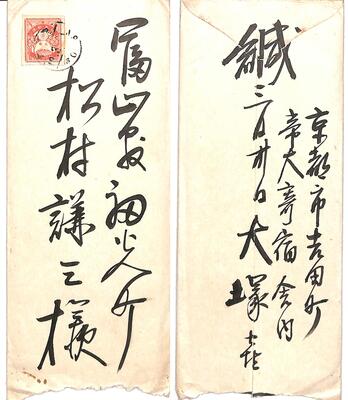 富山県福光町
松村謙三様
京都市吉田町
帝大寄宿舎内
緘
三月廿日 大塚